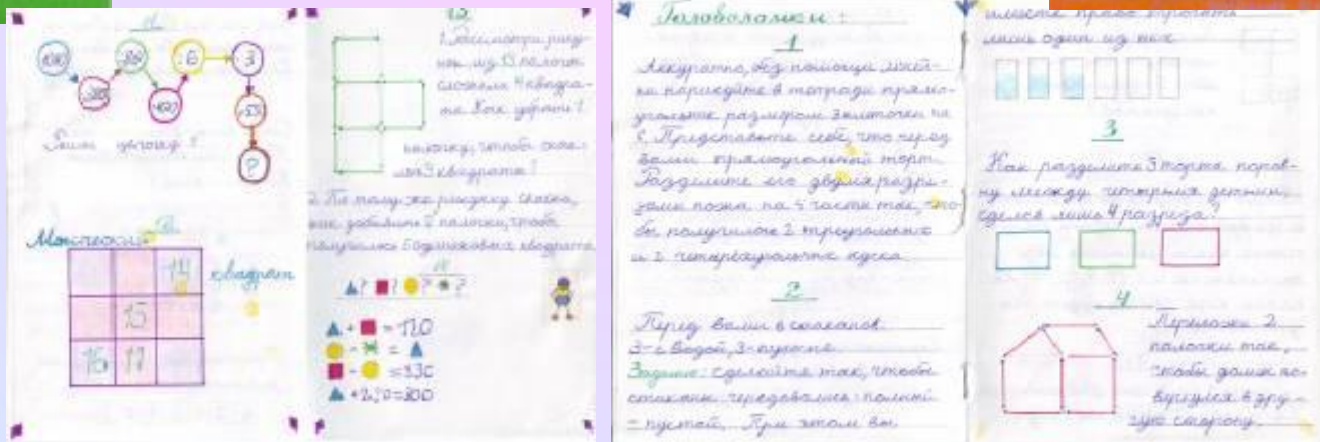 Реши цепочку
Магический
квадрат
14
15
16 17
1. Рассмотри рису-
нок, из 13 палочек
сложили 4 квадра-
та. Как убрать 1
палочку, чтобы оста-
3 квадрата?
2. По тому же рисунку скажи,
как добавить 2 палочки, чтобы
получилось 5 одинаковых квадрата
? ? ? ?
+ = 120
- =
- = 330
+ 250 = 300
Головоломки:
1
Аккуратно, без помощи линей-
ки нарисуйте в тетради прямо-
угольник размером 3 клеточки на
6. Представьте себе, что перед
вами прямоугольный торт.
Разделите его двумя разре-
зами ножа на 4 части так, что-
бы получилось 2 треугольных
и 2 четырехугольных куска.
2
Перед вами 6 стаканов.
3-с водой, 3-пустые.
Задание: сделайте так, чтобы
стаканы чередовались: полный
- пустой. При этом вы
имеете право трогать
лишь один из них
3
Как разделить 3 торта поров-
ну между четырьмя детьми,
сделав лишь 4 разреза?
4
Переложи 2
палочки так,
чтобы домик по-
вернулся в дру-
гую сторону.